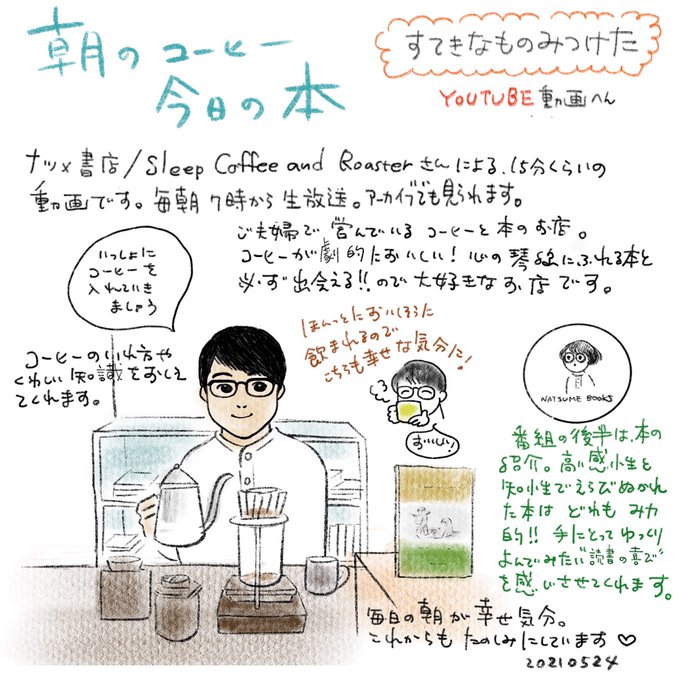 朝のコーヒー
今日の本
すてきなものみつけた
YOUTUBE 動画へん
ナツメ書店/Sleep Coffee and Roasterさんによる、15分くらいの
動画です。毎朝7時から生放送。アーカイブでも見られます。
ご夫婦で営んでいるコーヒーと本のお店。
コーヒーが劇的においしい!心の琴線にふれる本と
必ず出会える!!ので大好きなお店です。
いっしょに
コーヒーを
入れていき
ましょう
コーヒーのいれ方や
くわしい知識をおしえ
てくれます。
ほんっとにおいしそうに
飲まれるので
こちらも幸せな気分に!
おいしい!
NATSUME BOOKS
番組の後半は、本の
紹介。高い感性と
知性でえらびぬかれ
た本はどれもみ力
的!!手にとってゆっくり
よんでみたい"読書の喜び"
を感じさせてくれます。
毎日の朝が幸せ気分。
これからもたのしみにしています♡
20210524